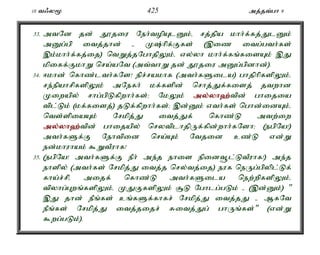 10 வாஃலமூ 425 அத்தவ்பா 9
33. அவனே தன் தூதரை நேர்வழியுடனும், சத்திய மார்க்கத்துடனும்
அனுப்பி வைத்தான் - முஷ்ரிக்குகள் (இணை வைப்பவர்கள்
இம்மார்க்கத்தை) வெறுத்தபோதிலும், எல்லா மார்க்கங்களையும் இது
மிகைக்குமாறு செய்யவே (அவ்வாறு தன் தூதரை அனுப்பினான்)
34. ஈமான் கொண்டவர்களே! நிச்சயமாக (அவர்களுடைய) பாதிரிகளிலும்,
சந்நியாசிகளிலும் அநேகர் மக்களின் சொத்துக்களைத் தவறான
முறையில் சாப்பிடுகிறார்கள்; மேலும் அல்லாஹ்வின் பாதையை
விட்டும் (மக்களைத்) தடுக்கிறார்கள்; இன்னும் எவர்கள் பொன்னையும்,
வெள்ளியையும் சேமித்து வைத்துக் கொண்டு அவற்றை
அல்லாஹ்வின் பாதையில் செலவிடாதிருக்கின்றார்களோ; (நபியே!)
அவர்களுக்கு நோவினை செய்யும் வேதனை உண்டு என்று
நன்மாராயம் கூறுவீராக!
35. (நபியே! அவர்களுக்கு நீர் அந்த நாளை நினைவூட்டுவீராக!) அந்த
நாளில் (அவர்கள் சேமித்து வைத்த செல்வத்தை) நரக நெருப்பிலிட்டுக்
காய்ச்சி, அதைக் கொண்டு அவர்களுடைய நெற்றிகளிலும்,
விலாப்புறங்களிலும், முதுகுகளிலும் சூடு போடப்படும் - (இன்னும்) "
இது தான் நீங்கள் உங்களுக்காகச் சேமித்து வைத்தது - ஆகவே
நீங்கள் சேமித்து வைத்ததைச் சுவைத்துப் பாருங்கள்" (என்று
கூறப்படும்)